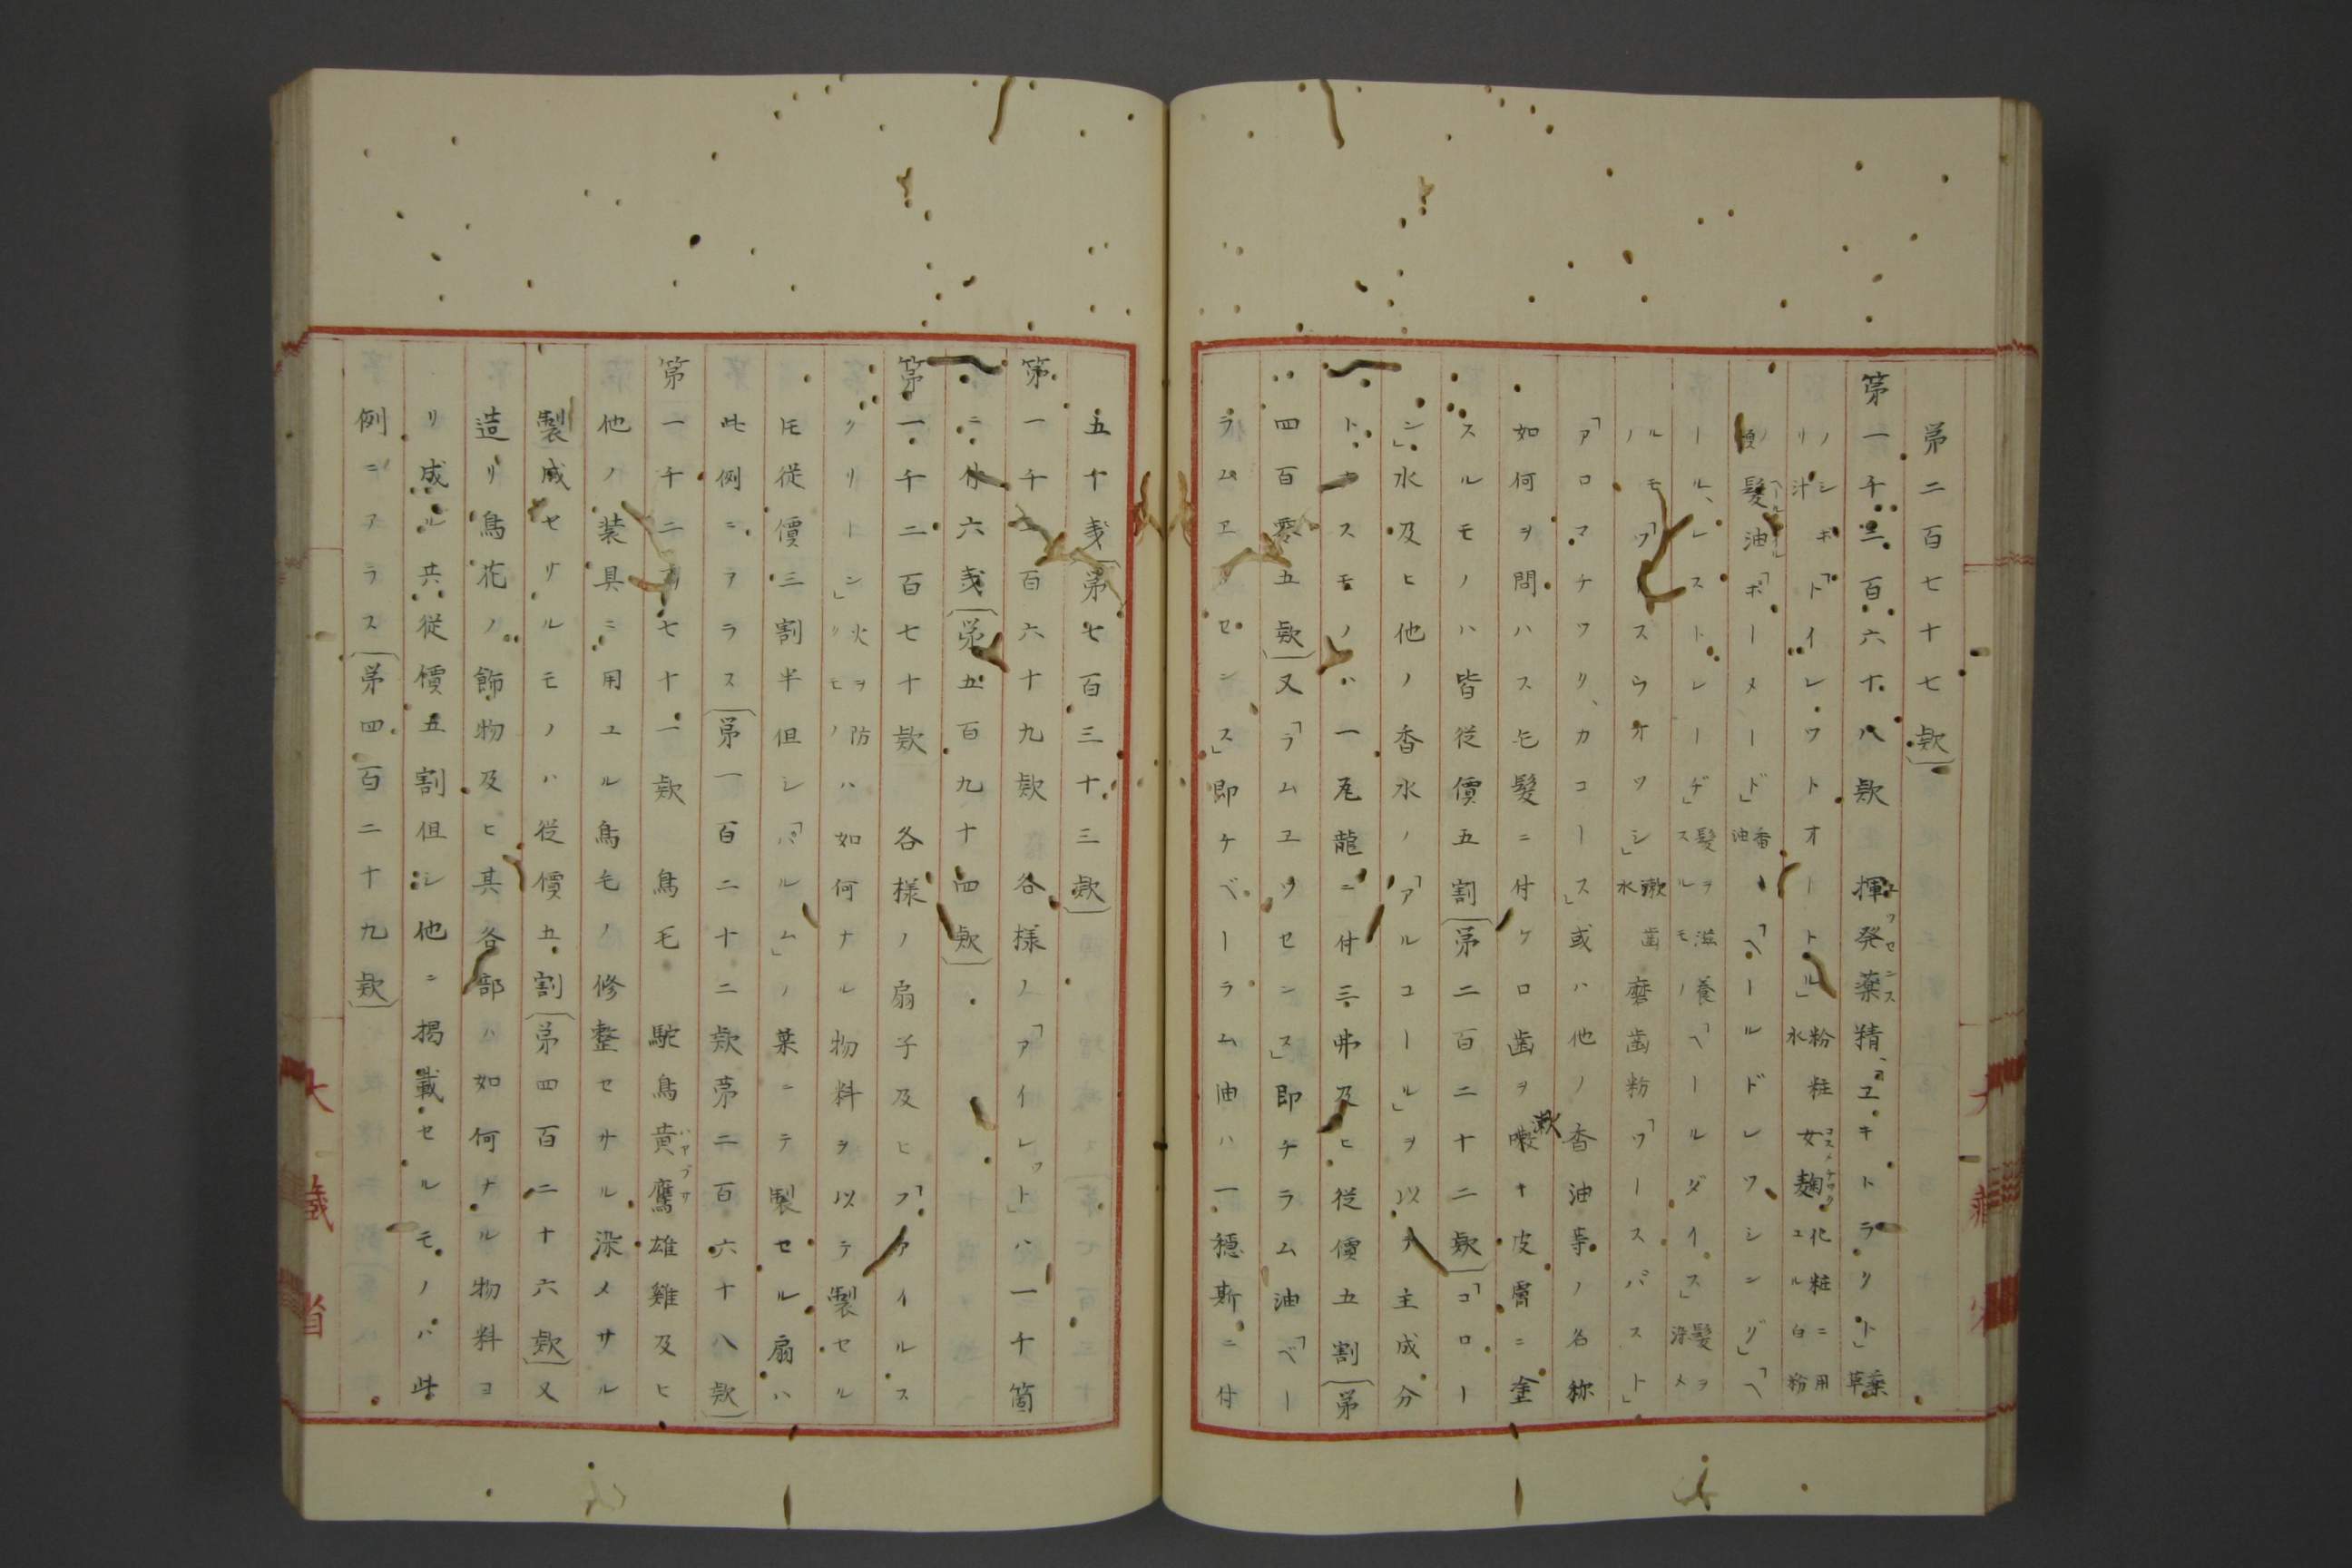 第二百七十七欵)
第一千二百六十八欵 揮発薬精、「エキトラリト」薬草
ノシボリ汁「トイレワトオートル」粉水 粧女麹化粧ニ用ユル白粉
髮油「ポーメード」香油、「ヘールドレワシング」「ヘ
ール、レストレーヂ」髮ヲ滋養スルモノ「ヘールダイス」髮ヲ染メ
ルモノ スウオツシ」漱水 歯磨歯粉「ワースパスト」
「アロマチツク、カコース」或ハ他ノ香油等ノ名称
如何ヲ問ハス毛髮ニ付ケ口歯ヲ漱キ皮膚ニ塗
スルモノハ皆從價五割(第二百二十二欵)「コロー
ン」水及ヒ他ノ香水ノ「アルコール」ヲ以テ主成分
トナスモノハ一瓦龍ニ付三弗及ヒ從價五割(第
四百零五欵)又「ラムエツセンス」即チラム油「ベー
ラムエツセンス」即ケベーラム油ハ一穏斯ニ付
五十戔(第七百三十三欵)
第一千二百六十九欵 各様ノ「アイレット」ハ一千箇
ニ付六戔(第五百九十四欵)
第一千二百七十欵 各様ノ扇子及ヒ「フアイルス
クリーン」火ヲ防クモノハ如何ナル物料ヲ以テ製セル
モ從價三割半但シ「パルム」ノ葉ニテ製セル扇ハ
此例ニアラス(第一百二十二欵第二百六十八欵)
第一千二百七十一欵 鳥毛 駝鳥黄鷹雄雞及ヒ
他ノ装具ニ用ユル鳥毛ノ修整セサル染メサル
製成セサルモノハ從價五割(第四百二十六欵)又
造リ鳥花ノ飾物及ヒ其各部ハ如何ナル物料ヨ
リ成ル共從價五割但シ他ニ掲載セルモノハ此
例ニアラス(第四百二十九欵)
大藏省